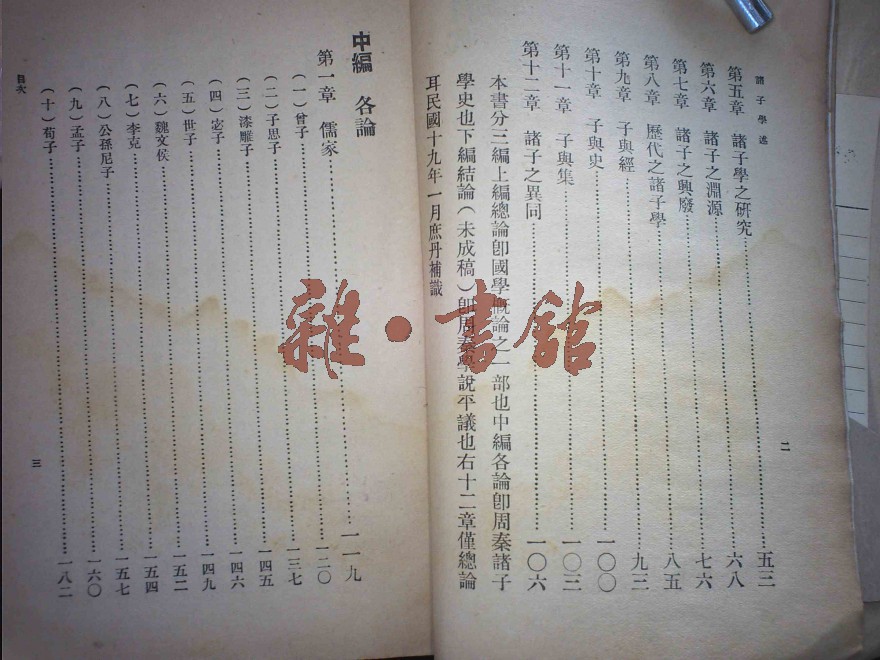 諸子學述
第五章 諸子學之研究……五三
第六章 諸子之淵源……六八
第七章 諸子之興廢……七六
第八章 歷代之諸子學……八五
第九章 子與經……九三
第十章 子與史……一〇〇
第十一章 子與集……一〇三
第十二章 諸子之異同……一〇六
本書分三編上編總論卽國學概論之一部也中編各論卽周秦諸子
學史也下編結論(未成稿)卽周秦學說平議也右十二章僅總論
耳民國十九年一月庶丹補識
二
中編 各論
第一章 儒家……一一九
(一)曾子……一二〇
(二)子思子……一三七
(三)漆雕子……一四五
(四)宓子……一四六
(五)世子……一四九
(六)魏文侯……一五二
(七)李克……一五四
(八)公孫尼子……一五七
(九)孟子……一六〇
(十)荀子……一八二
目次
三
雜·書館